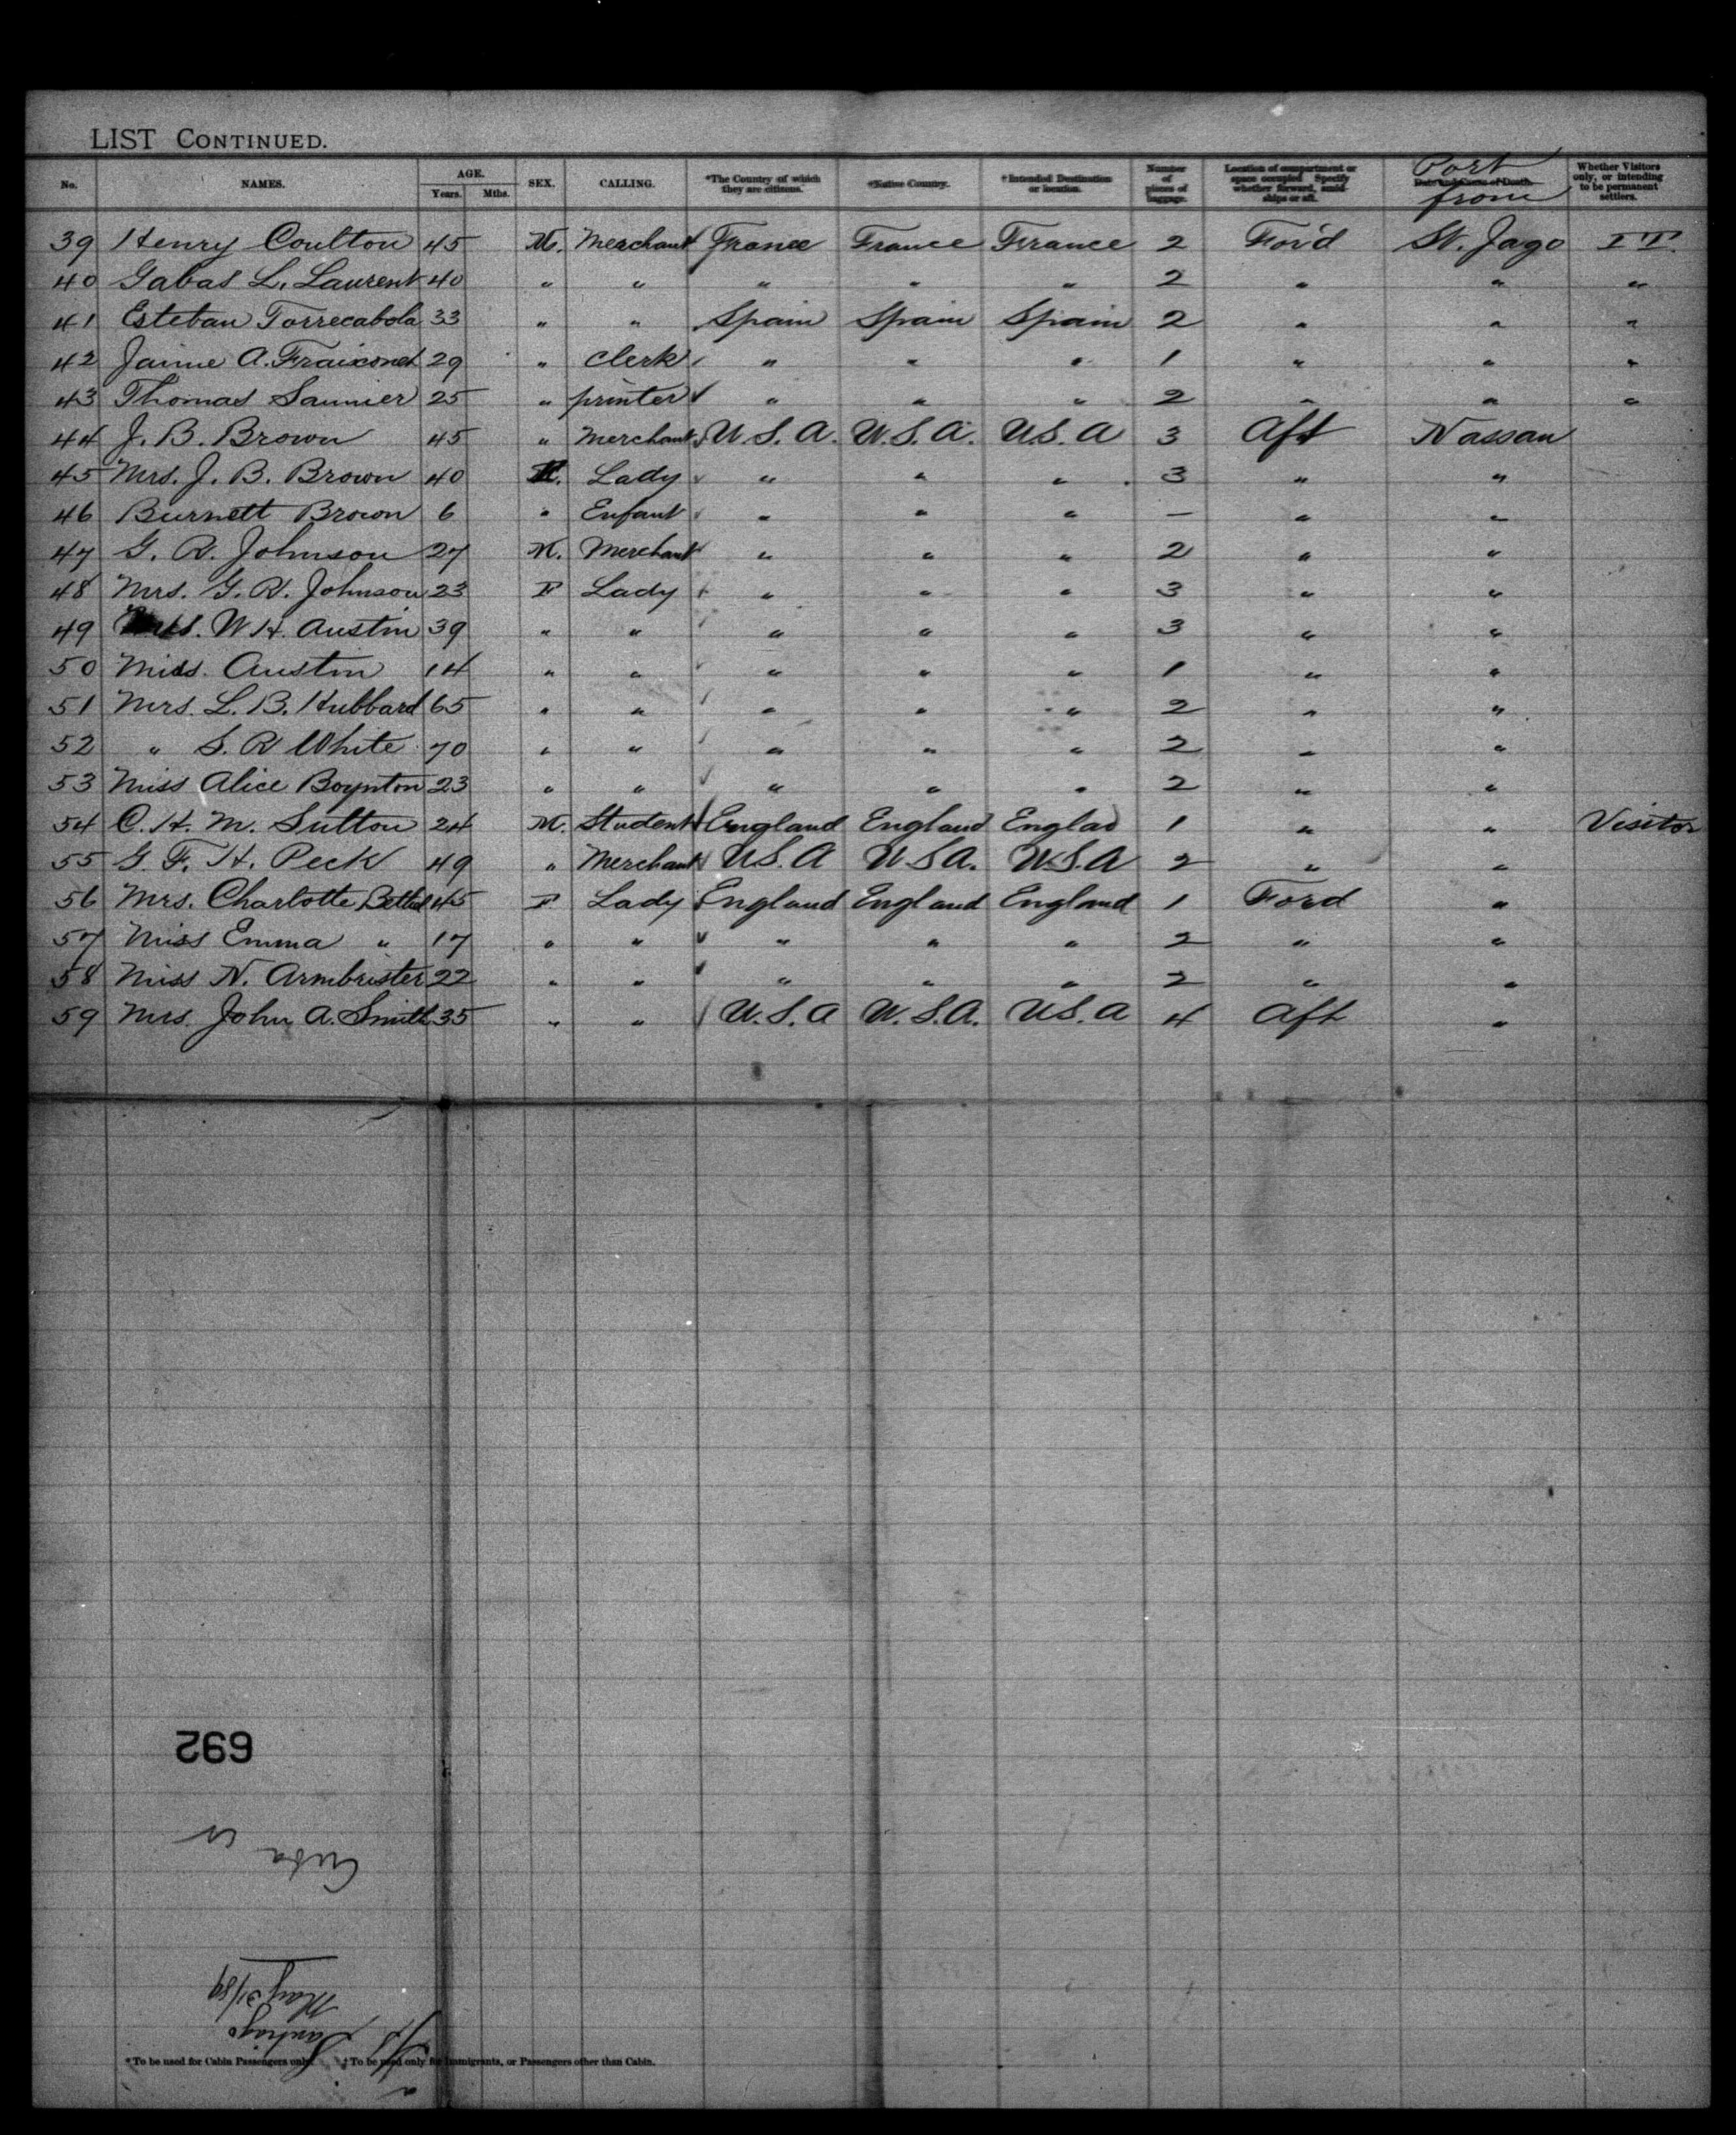 LIST CONTINUED.
No. NAMES. AGE. Years. Mths. SEX. CALLING. *The Country of which they are citizens. *Native Country. †Intended Destination or location. Number of pieces of baggage. Location of compartment or space occupied Specify whether forward, amidships or aft. Date and Cause of Death. Port from Whether Visitors only, or intending to be permanent settlers.
39 Henry Coulton 45 M. Merchant France France France 2 For'd St. Jago I T.
40 Gabas L. Laurent 40 " " " " " 2 " " "
41 Esteban Torrecabola 33 " " Spain Spain Spain 2 " " "
42 Jaime A. Fraixonet 29 " Clerk " " " 1 " " "
43 Thomas Saunier 25 " printer " " " 2 " " "
44 J. B. Brown 45 " Merchant U.S.A. U.S.A. U.S.A 3 Aft Nassau
45 Mrs. J. B. Brown 40 Lady " " " 3 " "
46 Burnett Brown 6 " Enfant " " " — " "
47 G. R. Johnson 27 M. Merchant " " " 2 " "
48 Mrs. G. R. Johnson 23 F Lady " " " 3 " "
49 Mrs. W H. Austin 39 " " " " " 3 " "
50 Miss. Austin 14 " " " " " 1 " "
51 Mrs. L. B. Hubbard 65 " " " " " 2 " "
52 " S. R White 70 " " " " " 2 " "
53 Miss Alice Boynton 23 " " " " " 2 " "
54 C. H. M. Sutton 24 M. Student England England Englad 1 " " Visitor
55 G. F. H. Peck 49 " Merchant U.S.A U.S.A. U.S.A 2 " "
56 Mrs. Charlotte Bethel 45 F Lady England England England 1 Ford "
57 Miss Emma " 17 " " " " " 2 " "
58 Miss N. Armbrister 22 " " " " " 2 " "
59 Mrs. John A. Smith 35 " " U.S.A U.S.A. U.S.A 4 Aft "
692
Cuba
May 31/89
Santiago
* To be used for Cabin Passengers only. † To be used only for Immigrants, or Passengers other than Cabin.